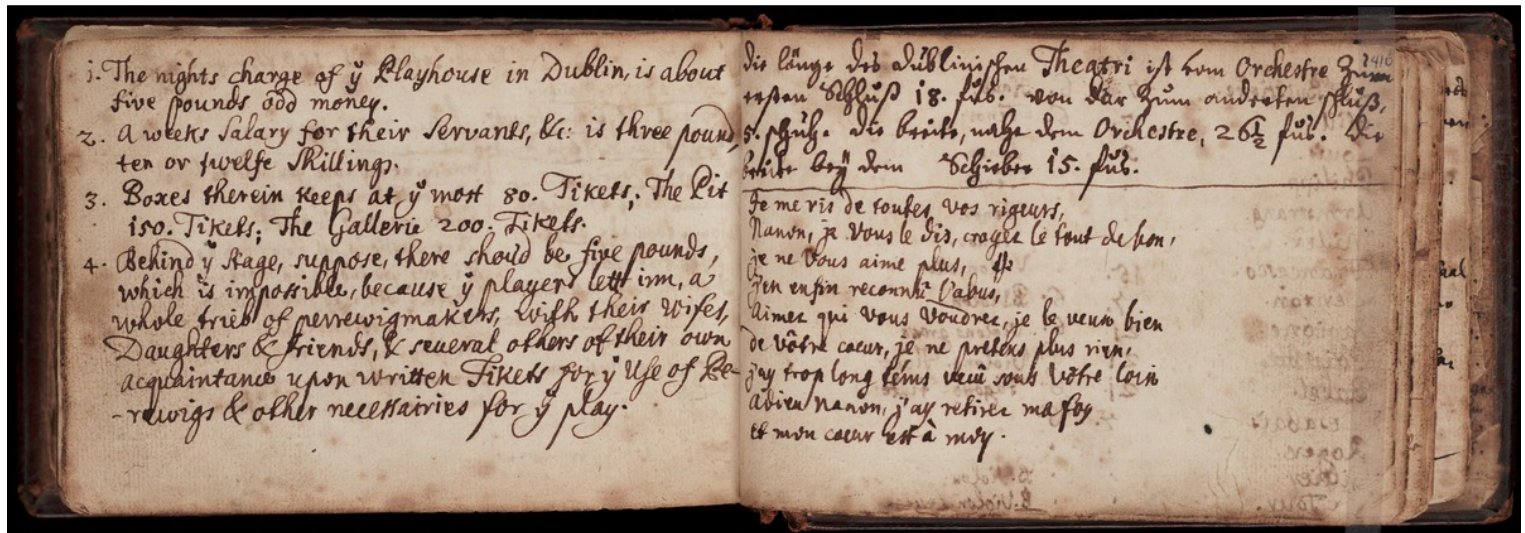 1. The nights charge of ÿ Playhouse in Dublin, is about
five pounds odd money.
2. A weeks Salary for their Servants, &c: is three pound,
ten or twelfe Skillings.
3. Boxes therein keeps at ÿ most 80. Tikets; The Pit
150. Tikets; The Gallerie 200. Tikets.
4. Behind ÿ Stage, suppose, there should be five pounds,
which is impossible, because ÿ players lett inn, a
whole trieb of perrewigmakers, with their Wifes,
Daughters & friends, & several others of their own
acquaintance upon written Tikets for ÿ Use of Pe-
-rewigs & other necessairies for ÿ play.
die länge des dublinischen Theatri ist vom Orchestre zum
ersten Schluß 18. fus. von dar zum anderten schluß,
5. schuh. die breite, nahe dem Orchestre, 26 1/2 fus. die
breite beÿ dem Schieber 15. fus.
Je me ris de toutes vos rigeurs,
Nanon, je vous le dis, croyez le tout de bon,
je ne vous aime plus,
j'en enfin reconnû l'abus,
aimez qui vous voudrez, je le veux bien
de vôtre coeur, je ne pretens plus rien,
j'ay trop long têms vecû sous vôtre loix
adieu nanon, j'ay retirez ma foy
et mon coeur est à moy.